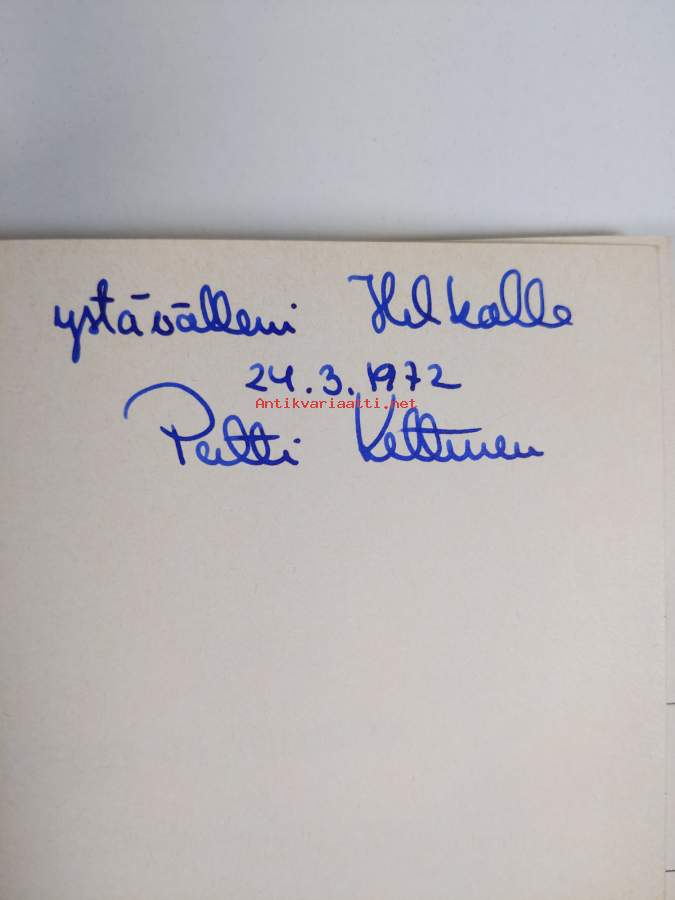 ystävälleni Helkalle
24.3.1972
Antikvariaatti.net
Pertti Kettunen